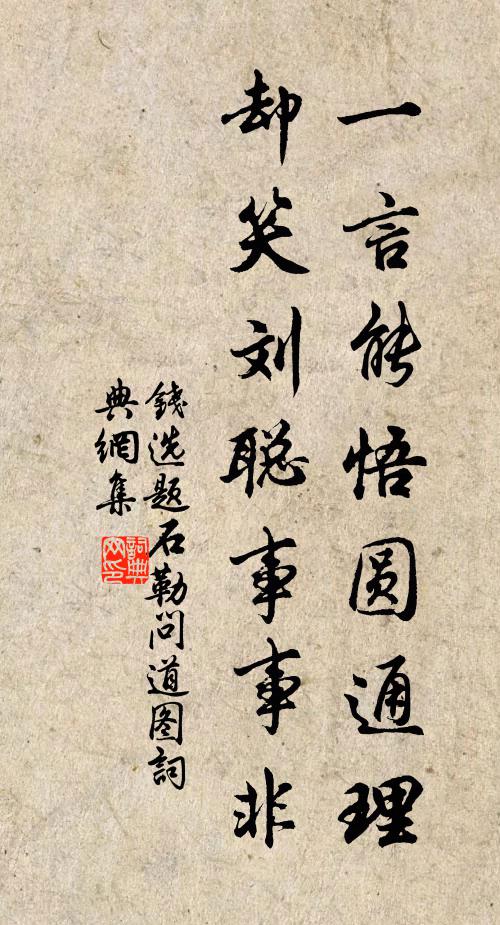 一言能悟圆通理
却笑刘聪事事非
錢选题石勒问道图詞
典網集
詞典
网印